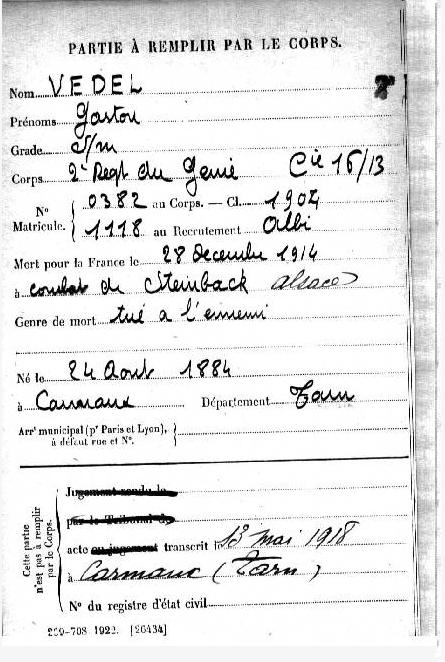 PARTIE À REMPLIR PAR LE CORPS.
Nom VEDEL
Prénoms Gaston
Grade S/m
Corps 2e Regt du Genie Cie 16/13
N° Matricule. { 0382 au Corps. — Cl. 1904
1118 au Recrutement Albi
Mort pour la France le 28 Decembre 1914
à combat de Steinback Alsace
Genre de mort tué a l'ennemi
Né le 24 Aout 1884
à Carmaux Département Tarn
Arrt municipal (pr Paris et Lyon), à défaut rue et N°. {
Cette partie n'est pas à remplir par le Corps.
Jugement rendu le
par le Tribunal de
acte ou jugement transcrit le 13 mai 1918
à Carmaux (Tarn)
N° du registre d'état civil
269-708 1922. [26434]